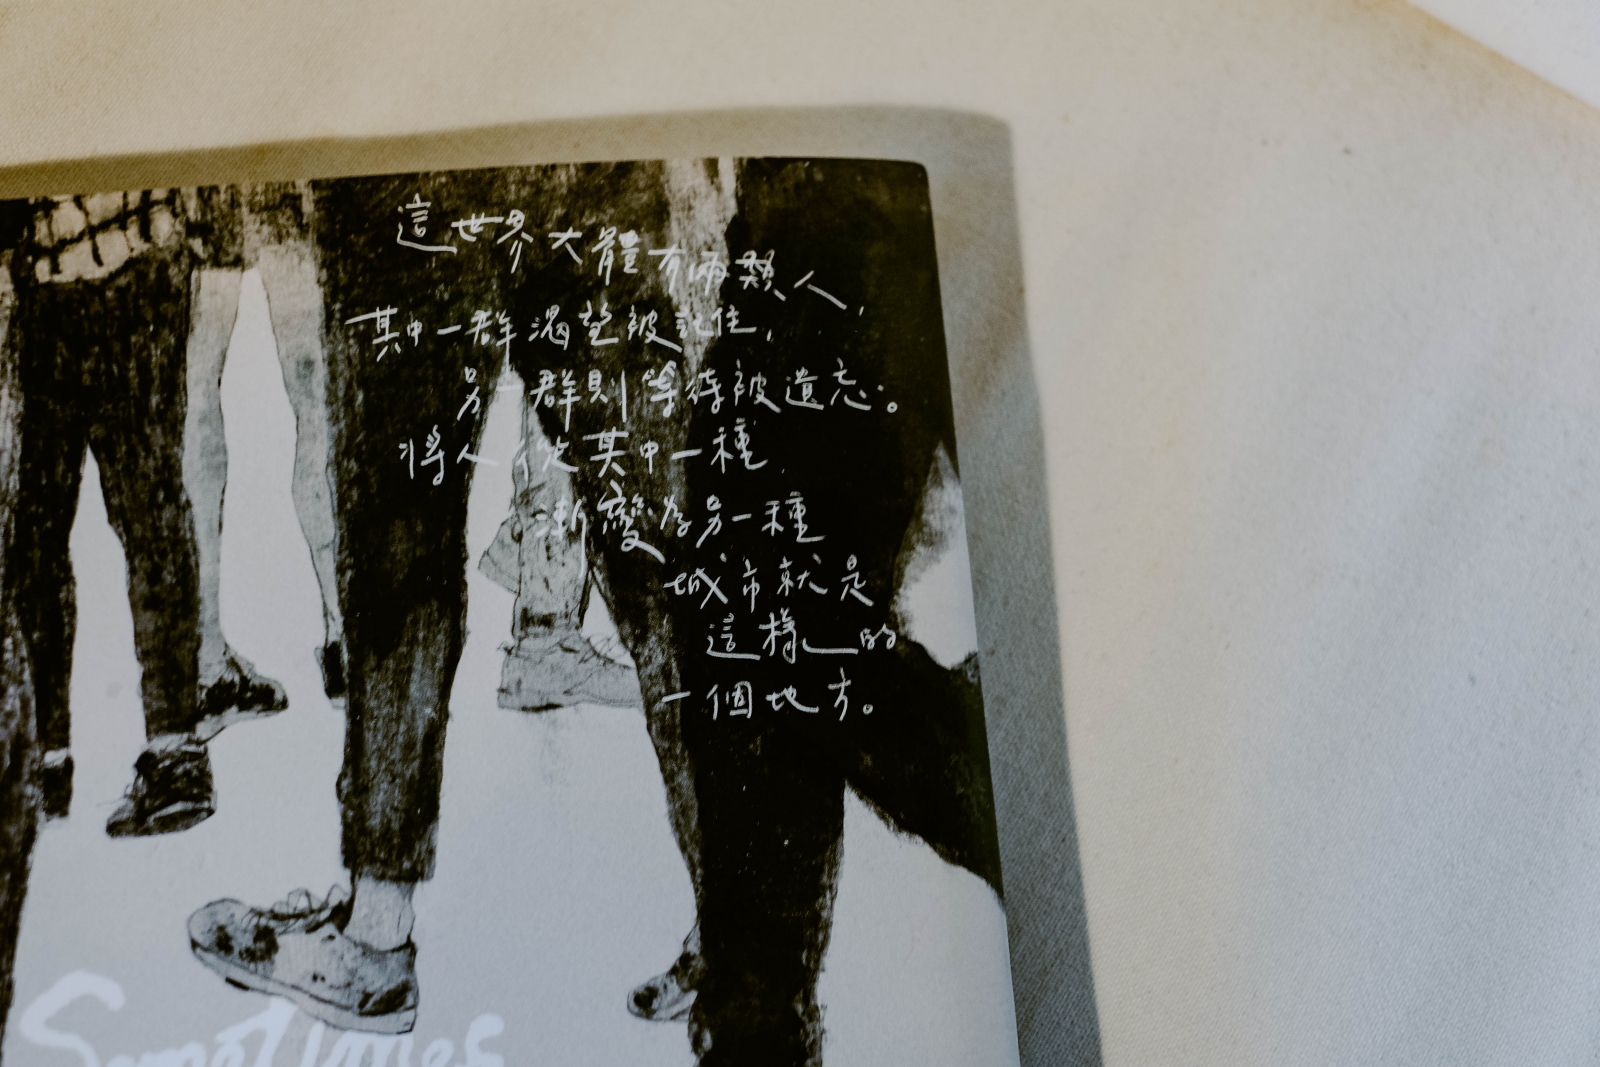 這世界大體有兩類人，
其中一群渴望被記住，
另一群則等待被遺忘。
將人從其中一種
漸變為另一種
城市就是
這樣的
一個地方。
Sometimes